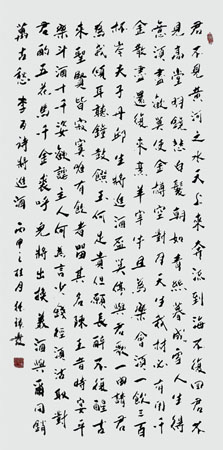 君不見黄河之水天上来奔流到海不復回君不
見高堂明鏡悲白髮朝如青絲暮成雪人生得
意須盡歡莫使金樽空對月天生我材必有用千
金散盡還復来烹羊宰牛且為樂會須一飲三百
杯岑夫子丹邱生將進酒盃莫停與君歌一曲請君
為我傾耳聽鐘鼓饌玉何足貴但願長醉不復醒古
来聖賢皆寂寞唯有飲者留其名陳王昔時宴平
樂斗酒十千姿歡謔主人何為言少錢徑須沽取對
君酌五花馬千金裘呼兒將出換美酒與爾同銷
萬古愁 李白詩將進酒 丙申之桂月